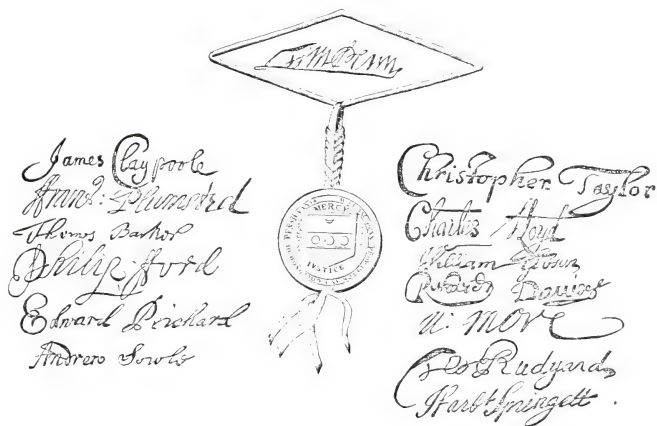 Wm Penn
James Claypoole
ffranc: Plumsted
Thomas Barker
Philip fford
Edward Prichard
Andrew Sowle
MERCY
JUSTICE
Christopher Taylor
Charles Lloyd
William Gibson
Richard Davies
N: More
Tho Rudyard
Harbt Springett.